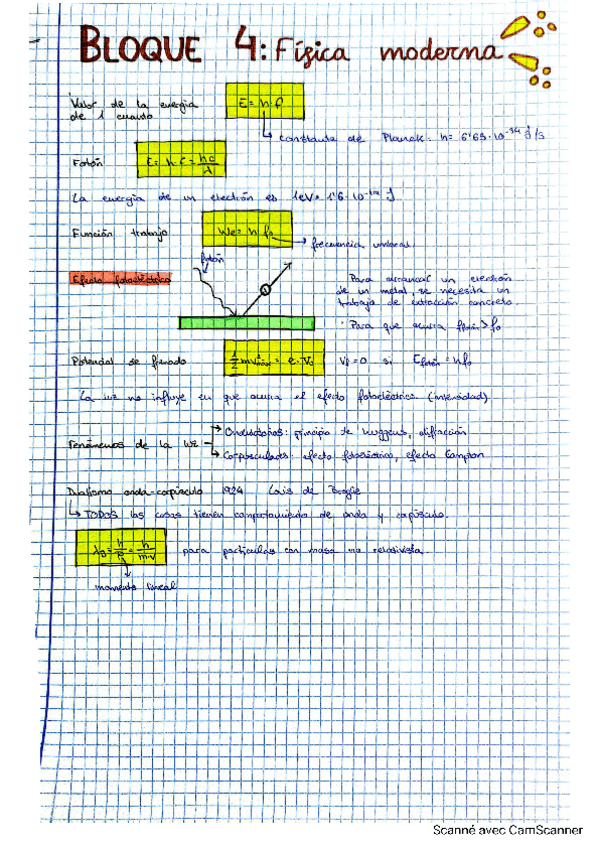 BLOQUE 4: Física moderna
Valor de la energía
de 1 cuanto
E = h·f
constante de Planck: h = 6'63·10⁻³⁴ J/s
Fotón
E = h·f = hc/λ
La energía de un electrón es 1eV = 1'6·10⁻¹⁹ J
Función trabajo
We = h·f₀
frecuencia umbral
Efecto fotoeléctrico
fotón
Para arrancar un electrón
de un metal, se necesita un
trabajo de extracción concreto.
· Para que ocurra ffotón > f₀
Potencial de frenado
½mv²máx = e·V₀
Vf = 0 si Efotón = hf₀
La luz no influye en que ocurra el efecto fotoeléctrico (intensidad)
Fenómenos de la luz
Ondulatorios: principio de Huygens, difracción
Corpusculares: efecto fotoeléctrico, efecto Compton
Dualismo onda-corpúsculo 1924 Louis de Broglie
TODOS las cosas tienen comportamiento de onda y corpúsculo.
λB = h/p = h/mv para partículas con masa no relativista.
momento lineal
Scanné avec CamScanner